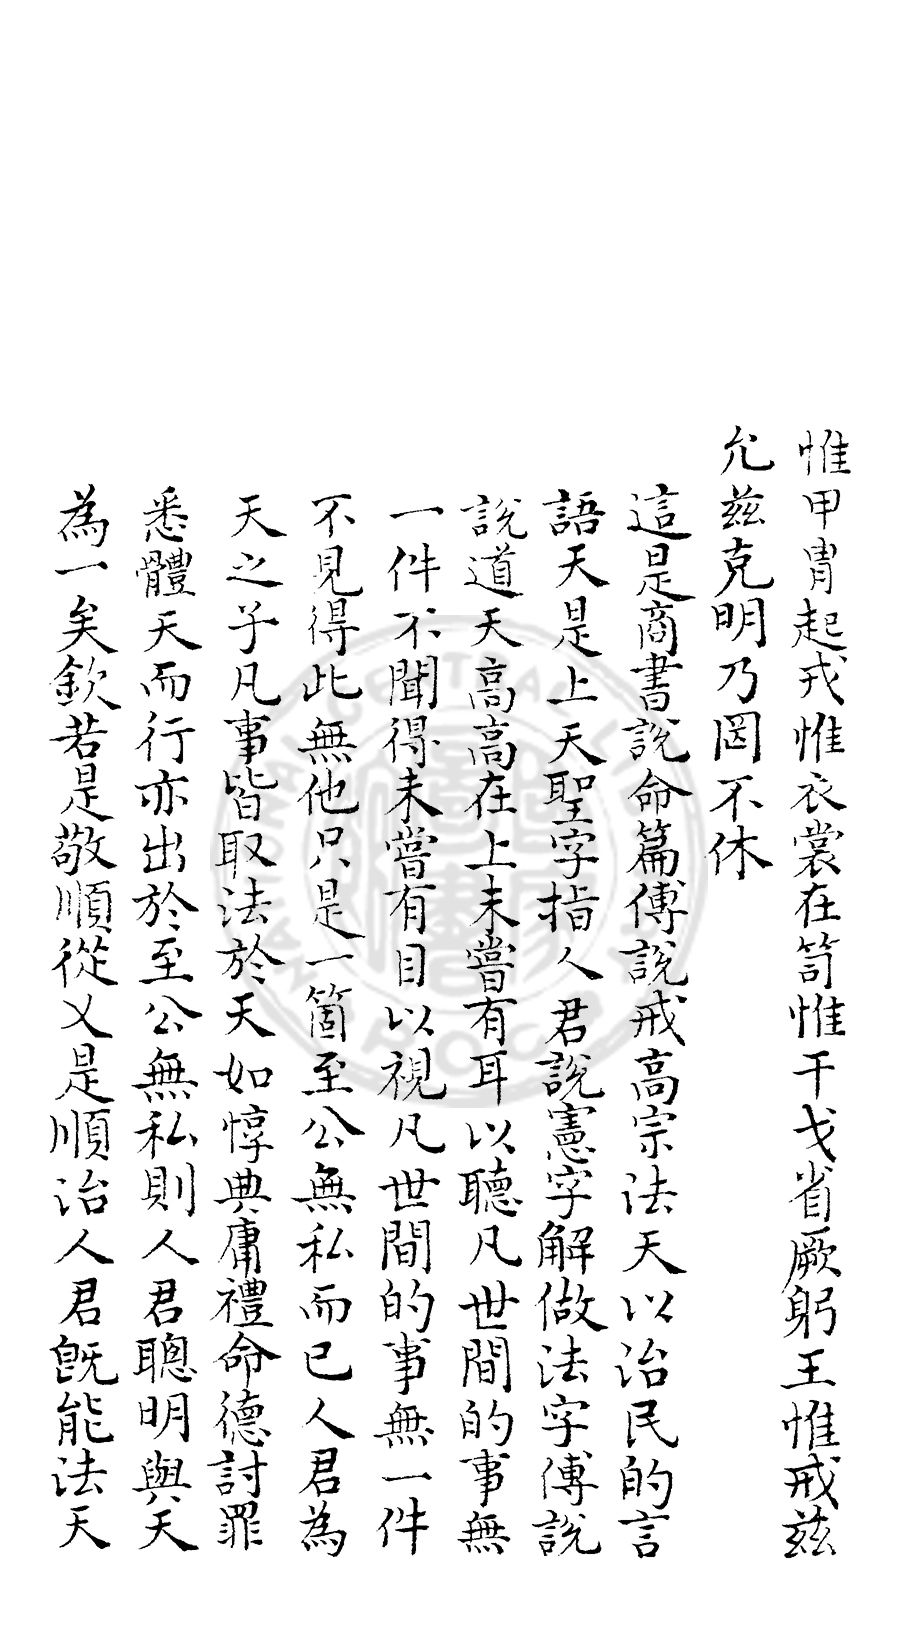 惟甲冑起戎惟衣裳在笥惟干戈省厥躬王惟戒茲
允茲克明乃罔不休
這是商書說命篇傅說戒高宗法天以治民的言
語天是上天聖字指人君說憲字解做法字傅說
說道天高高在上未嘗有耳以聽凡世間的事無
一件不聞得未嘗有目以視凡世間的事無一件
不見得此無他只是一箇至公無私而已人君為
天之子凡事皆取法於天如惇典庸禮命德討罪
悉體天而行亦出於至公無私則人君聰明與天
為一矣欽若是敬順從乂是順治人君旣能法天